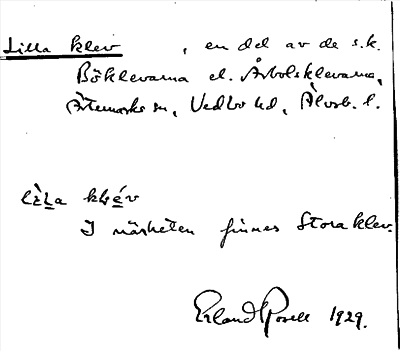 Lilla klev, en del av de s.k.
Böklevarna el. Årbolsklevarna,
Ärtemarks sn, Vedbo hd, Älvsb. l.
lìl̠a klé̠v
I närheten finnes Stora klev.
Erland Rosell 1929.